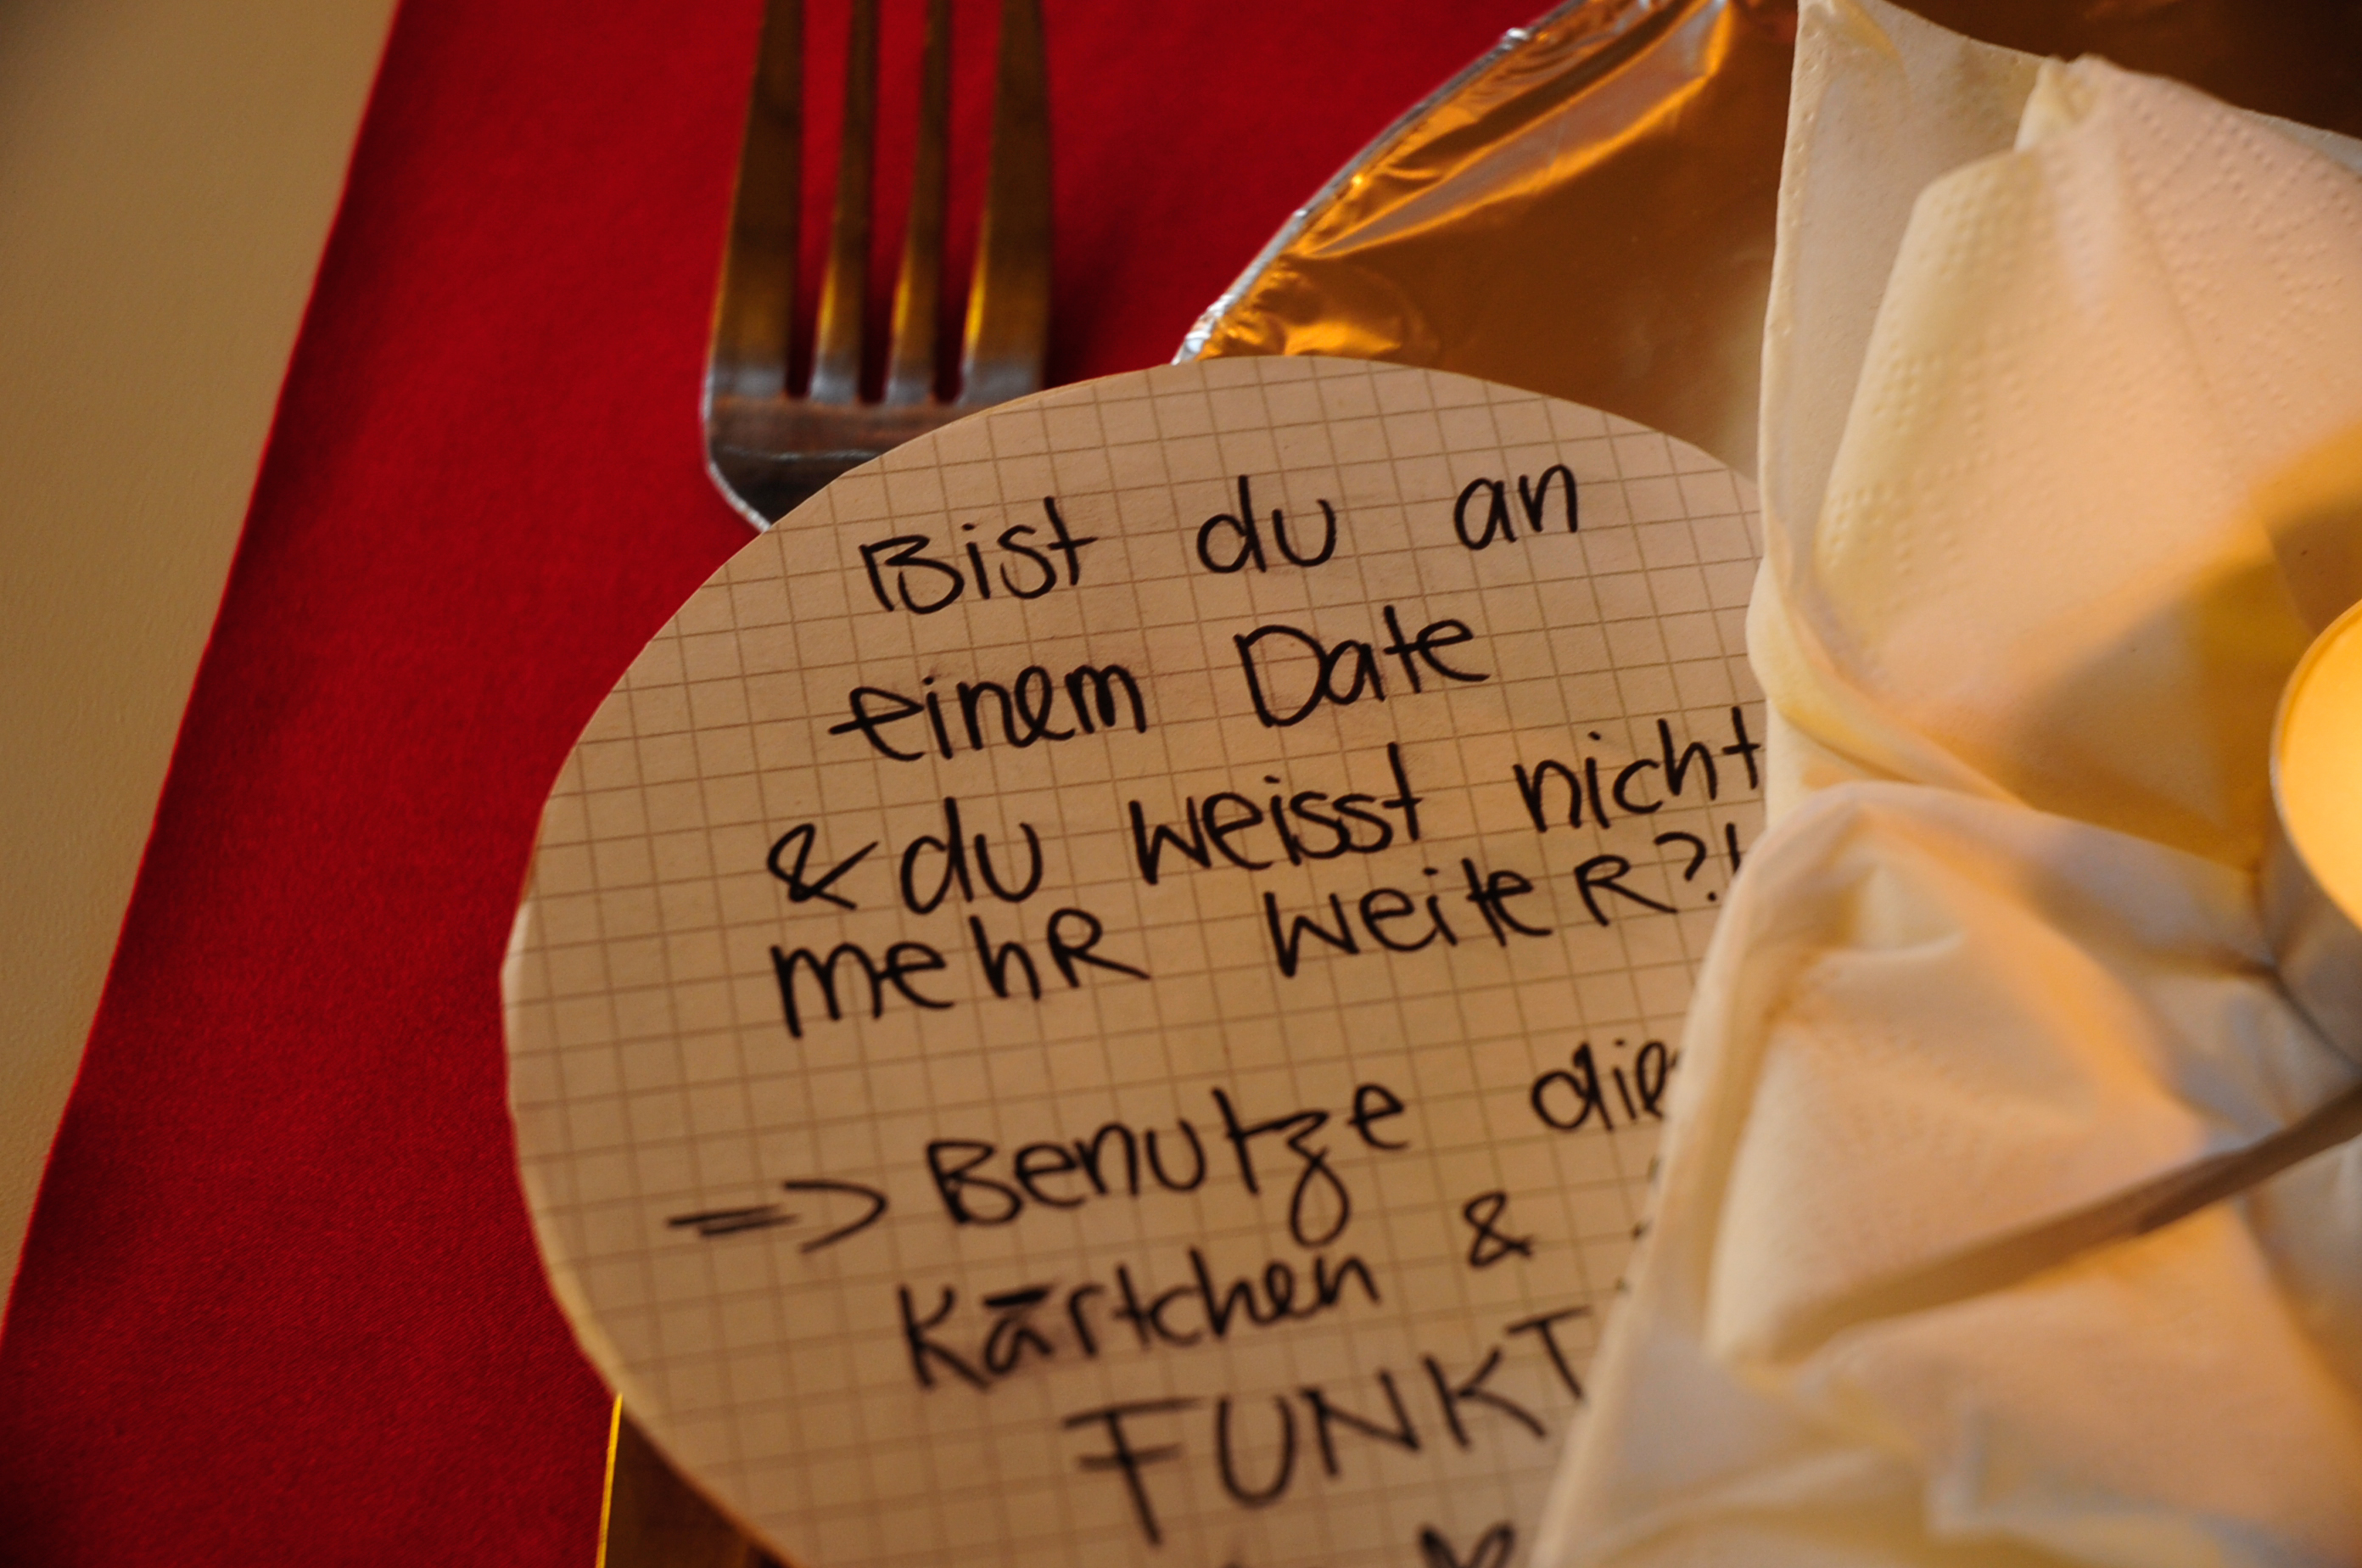 Bist du an
einem Date
& du weisst nicht
mehR weiteR?!
=> Benutze die
Kärtchen &
FUNKT